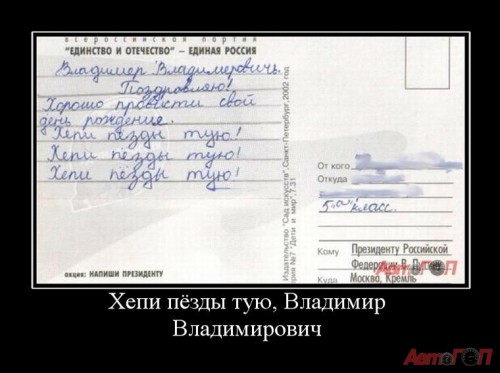 всероссийская партия
"ЕДИНСТВО И ОТЕЧЕСТВО" – ЕДИНАЯ РОССИЯ
Владимер Владимеровичь.
Поздровляю!
Хорошо провести свой
день рождение.
Хепи пёзды тую!
Хепи пёзды тую!
Хепи пёзды тую!
акция: НАПИШИ ПРЕЗИДЕНТУ
Издательство "Сад искусств", Санкт-Петербург, 2002 год
серия №7 "Дети и мир", 7.31
От кого
Откуда
5 "а" класс.
Кому Президенту Российской
Федерации В. Путину
Куда Москва, Кремль
АвтоГОП
Хепи пёзды тую, Владимир
Владимирович
АвтоГОП